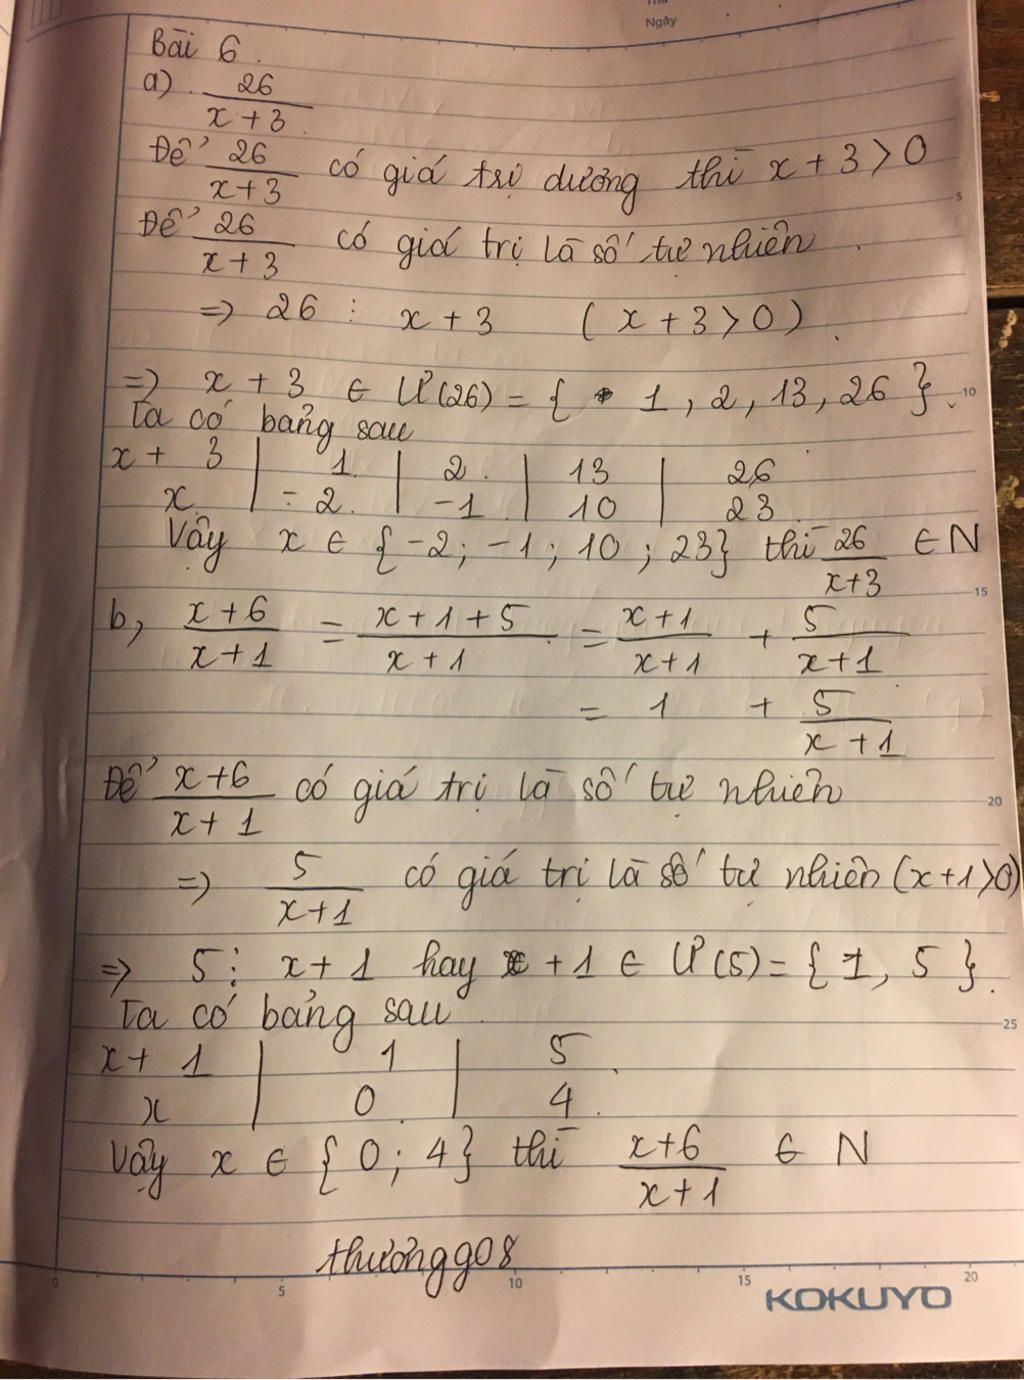 Thứ
Ngày
Bài 6.
a). 26/(x + 3)
Để 26/(x+3) có giá trị dương thì x + 3 > 0
Để 26/(x+3) có giá trị là số tự nhiên.
=> 26 ⋮ x + 3 ( x + 3 > 0 ).
=> x + 3 ∈ Ư(26) = { 1, 2, 13, 26 }.
Ta có bảng sau
x + 3 | 1 | 2 | 13 | 26
x | -2 | -1 | 10 | 23
Vậy x ∈ {-2; -1; 10; 23} thì 26/(x+3) ∈ N
b, (x+6)/(x+1) = (x+1+5)/(x+1) = (x+1)/(x+1) + 5/(x+1)
= 1 + 5/(x+1)
Để (x+6)/(x+1) có giá trị là số tự nhiên
=> 5/(x+1) có giá trị là số tự nhiên (x+1>0)
=> 5 ⋮ x+1 hay x+1 ∈ Ư(5) = { 1, 5 }.
Ta có bảng sau
x + 1 | 1 | 5
x | 0 | 4
Vậy x ∈ { 0; 4} thì (x+6)/(x+1) ∈ N
thươngg08
5
10
15
20
25
0 5 10 15 20
KOKUYO